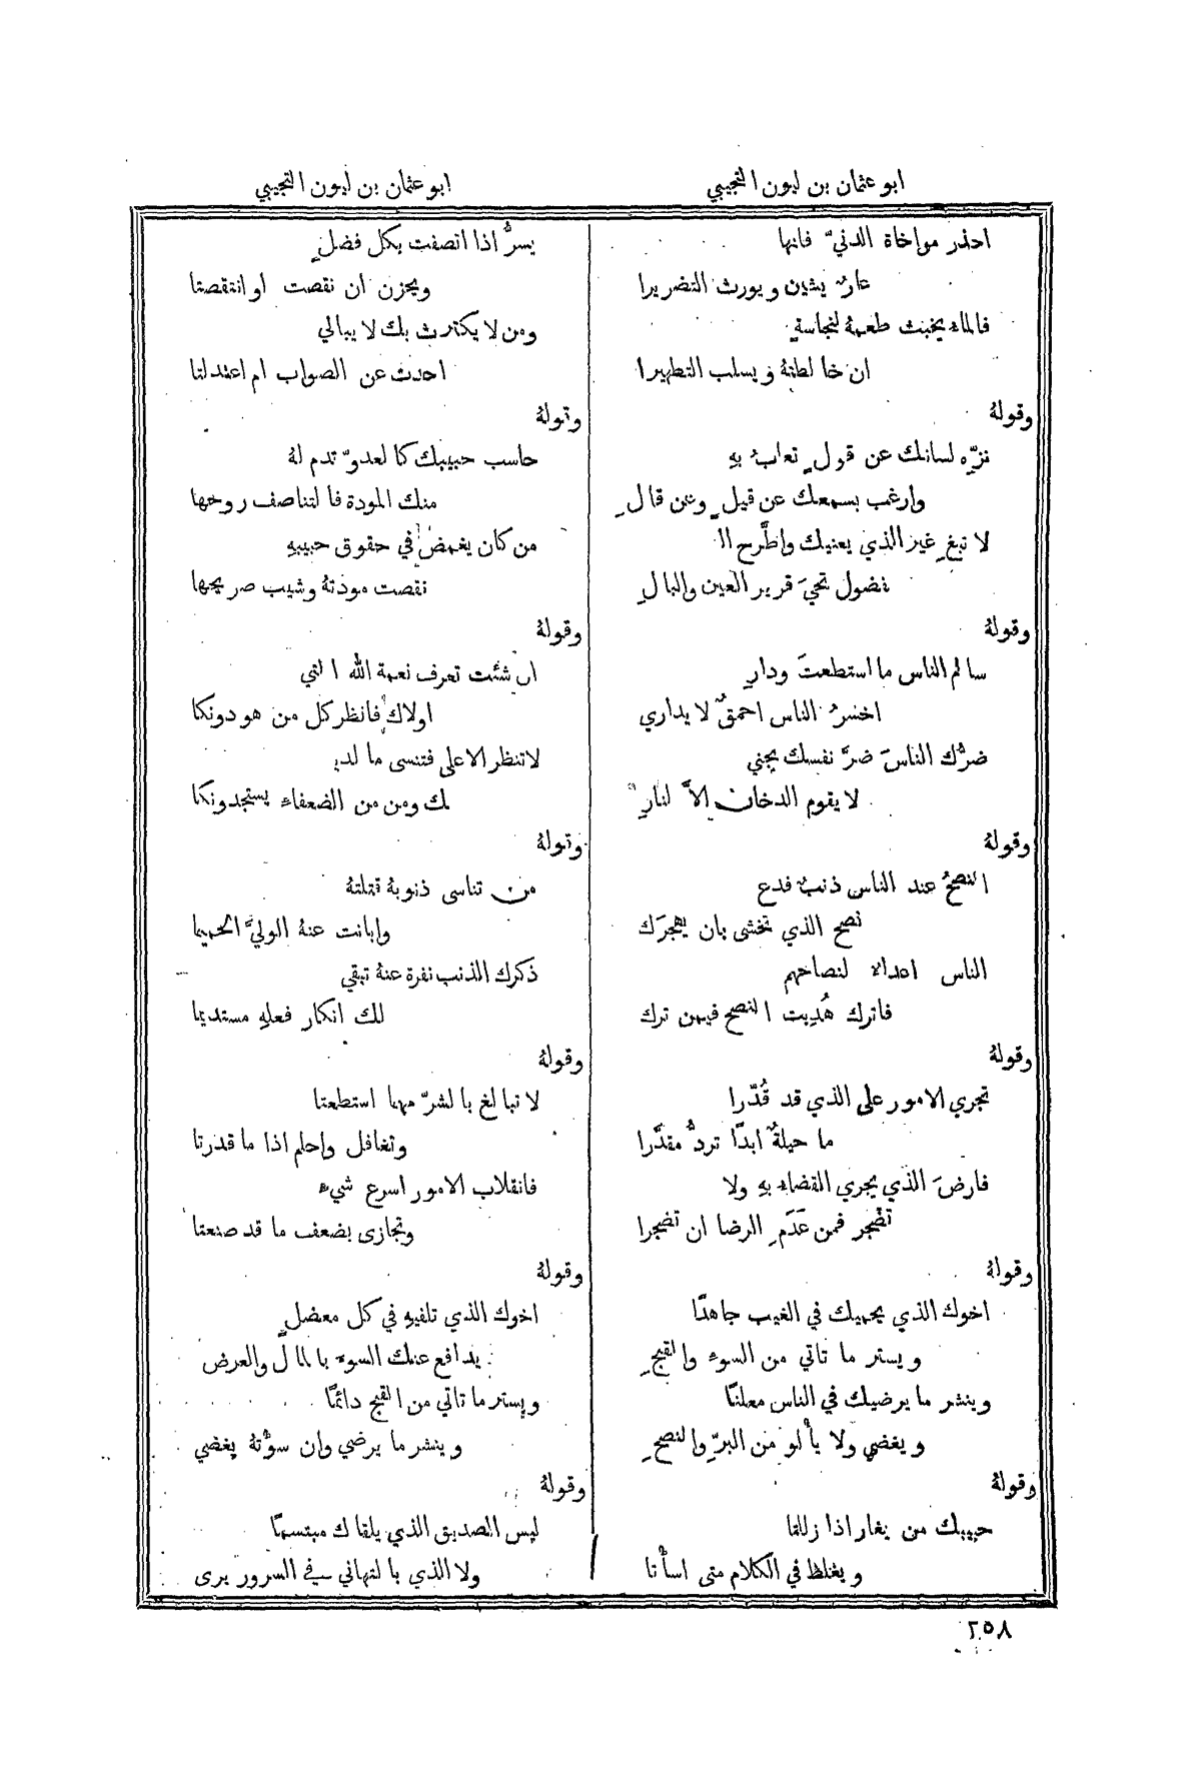 ابو عثمان بن ليون التجيبي
احذر مواخاة الدنيّ فانها
عارٌ يشين ويورث التضريرا
فالماء يخبث طعمهُ لنجاسةٍ
ان خالطتهُ ويسلب التطهيرا
وقولهُ
نزّه لسانك عن قولٍ تعابُ بهِ
وارغب بسمعك عن قيلٍ وعن قالِ
لا تبغِ غير الذي يعنيك واطَّرح ال
فضول تحيَ قرير العين والبالِ
وقولهُ
سالم الناس ما استطعتَ ودارِ
اخسرُ الناس احمقٌ لا يداري
ضرُّك الناسَ ضرَّ نفسك يجني
لا يقوم الدخان الاَّ لنارِ
وقولهُ
النصحُ عند الناس ذنبٌ فدع
نصح الذي تخشى بان يهجرَك
الناس اعداء لنصاحهم
فاترك هُدِيت النصح فيمن ترك
وقولهُ
تجري الامور على الذي قد قُدّرا
ما حيلةٌ ابدًا تردُّ مقدَّرا
فارضَ الذي يجري القضاء بهِ ولا
تضجر فمن عَدَمِ الرضا ان تضجرا
وقولهُ
اخوك الذي يحميك في الغيب جاهدًا
ويستر ما تاتي من السوء والقبحِ
وينشر ما يرضيك في الناس معلنًا
ويغضي ولا يألو من البرِّ والنصحِ
وقولهُ
حبيبك من يغار اذا زللتا
ويغلظ في الكلام متى اسأتا
ابو عثمان بن ليون التجيبي
يسرُّ اذا اتصفت بكل فضلٍ
ويحزن ان نقصت او انتقصتا
ومن لا يكترث بك لا يبالي
احدث عن الصواب ام اعتدلتا
وقولهُ
حاسب حبيبك كالعدوّ تدم لهُ
منك المودة فالتناصف روحها
من كان يغمض في حقوق حبيبهِ
نقصت مودتهُ وشيب صريحها
وقولهُ
ان شئت تعرف نعمة الله التي
اولاك فانظر كل من هو دونكا
لا تنظر الاعلى فتنسى ما لدي
ك ومن من الضعفاء يستجدونكا
وقولهُ
من تناسى ذنوبهُ قتلتهُ
وابانت عنهُ الوليَّ الحميما
ذكرك الذنب نفرة عنهُ تبقي
لك انكار فعلهِ مستديما
وقولهُ
لا تبالغ بالشرّ مهما استطعتا
وتغافل واحلم اذا ما قدرتا
فانقلاب الامور اسرع شيء
وتجازى بضعف ما قد صنعتا
وقولهُ
اخوك الذي تلفيهِ في كل معضلٍ
يدافع عنك السوء بالمال والعرض
ويستر ما تاتي من القبح دائمًا
وينشر ما يرضي وان سؤتهُ يغضي
وقولهُ
ليس الصديق الذي يلقاك مبتسمًا
ولا الذي بالتهاني في السرور يرى
٢٥٨